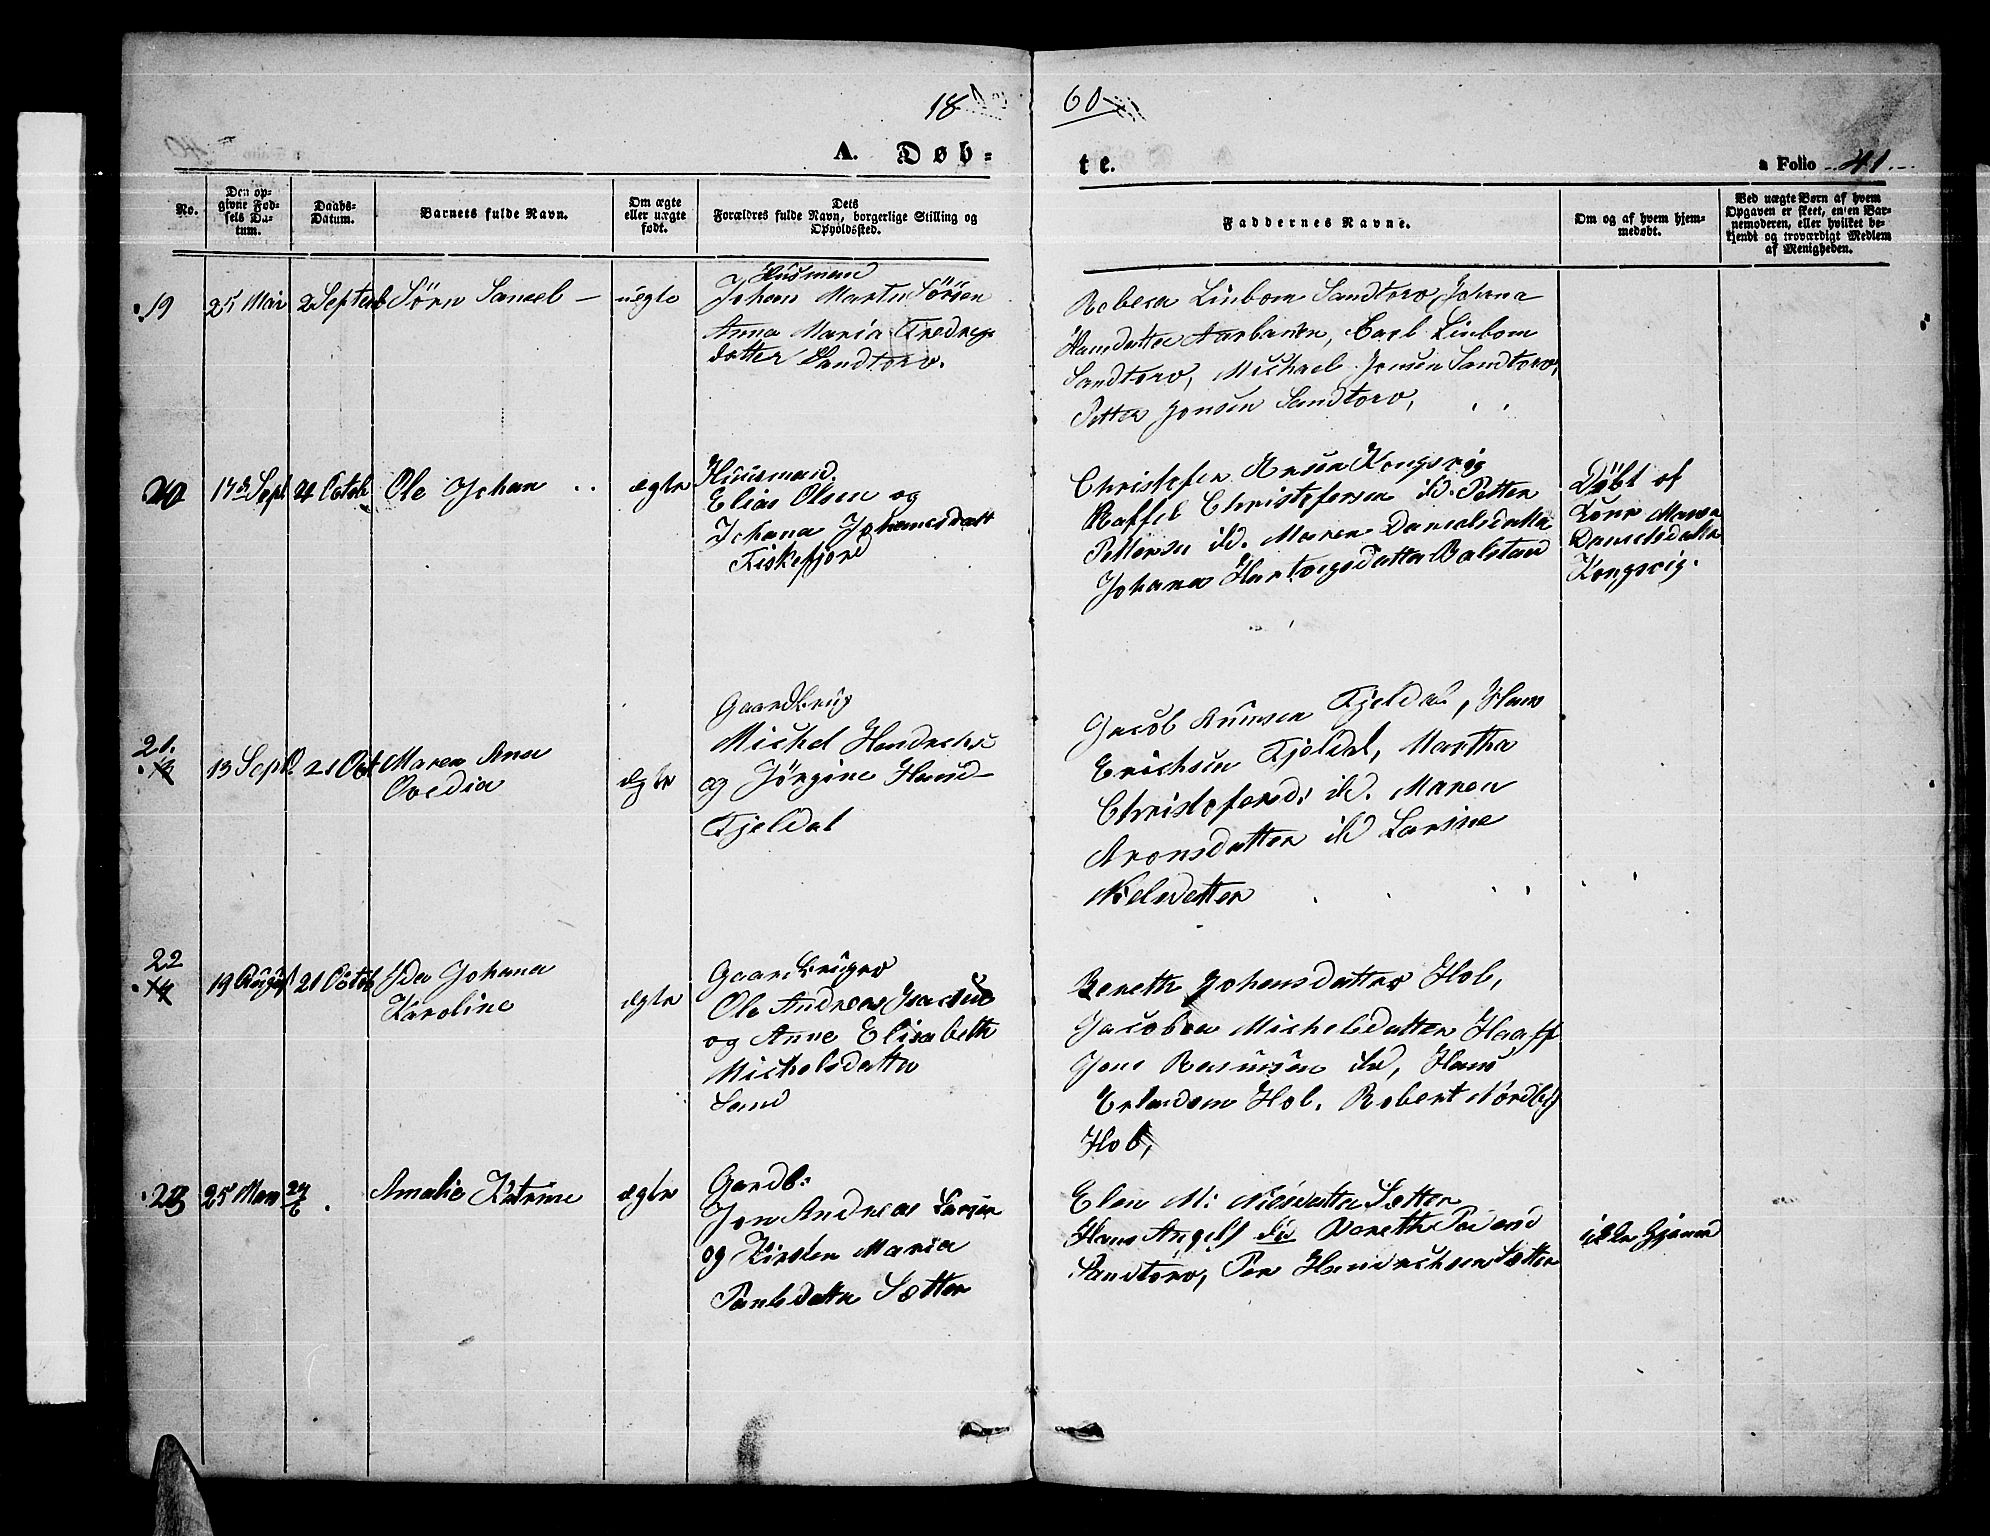 18
60
A. Døb-
te.
a Folio 41
No.
Den op-
givne Fød-
sels Da-
tum.
Daabs-
Datum.
Barnets fulde Navn.
Om ægte
eller uægte
født.
Dets
Forældres fulde Navn, borgerlige Stilling og
Opholdssted.
Faddernes Navne.
Om og af hvem hjem-
medøbt.
Ved uægte Børn af hvem
Opgaven er skeet, enten Bar-
nemoderen, eller hvilket be-
kjendt og troværdigt Medlem
af Menigheden.
19
25 Mai
2 Septeb
Sörn
uegte
Husman
Johan Martn Sörsen
Anna Maria Fredreg
dotter Sandtorv.
Rebeca Linbom Sandtorv, Johana
Hansdatter, Carl Linbom
Sandtorv, Michael Jensen Sandtorv,
Petter Jonsen Sandtorv,
20
17de Sept
21 Octob
Ole Johan
ægte
Huusmand
Elias Olsen og
Johana Johanesdatt
Fiskefjord
Christofer Kongsvig
Raffel Christofersen ibd. Petter
Pettersen ibd. Maren Danielsdatter
Johana Hartvigsdatter Balstad
Döbt af
Kone Maren
Danielsdatter
Kongsvig.
21.
13 Sept.
21 Oct
Maren Ana
Ovedia
ægte
Gaardbrug
Michel Hendrichs
og Jörgine Hansd
Fjeldal
Jacob Fjeldal, Hans
Erichsen Fjeldal, Martha
Christofersd. ibd. Maren
Aronsdatter ibd Larsine
Nielsdatter
22
19 August
21 Octob
Ida Johana
Karoline
ægte
Gaardbruger
Ole Andreas Isacsen
og Anne Elisabeth
Michelsdatter
Sand
Bereth Johansdatter Hol,
Jacobea Michelsdatter Haaff
Jens Rasmusen ibd, Hans
Erlandsen Hol. Robert Nordby
Hol,
23
25 Mars
24/6
Amalie Katrine
ægte
Gardb:
Jon Andreas Larsen
og Kirsten Maria
Paulsdatter Sætter
Elen M: Nielsdatter Sætter
Hans Angell ibd Bereth
Sandtorv, Per Hendrichsen Sætter
ikke Hjemmed